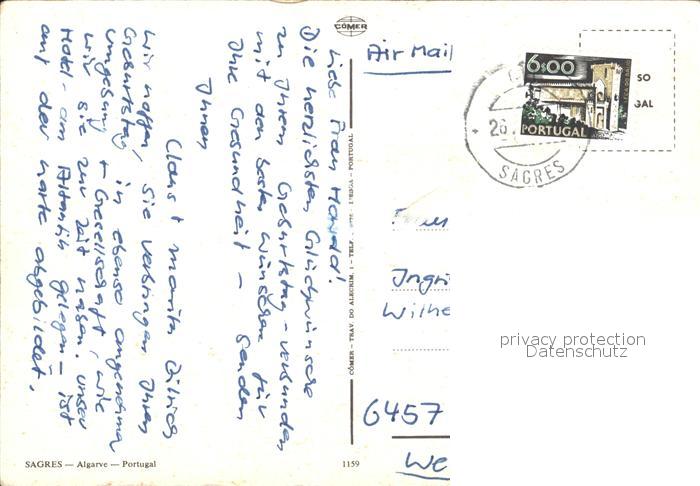 CÓMER
Liebe Frau Howald!
Die herzlichsten Glückwünsche
zu Ihrem Geburtstag - verbunden
mit den besten Wünschen für
Ihre Gesundheit - senden
Ihnen
Claus + Marita
Wir hoffen, Sie verbringen Ihren
Geburtstag in ebenso angenehmer
Umgebung + Gesellschaft, wie
wir sie zur Zeit haben. Unser
Hotel - am Atlantik gelegen - ist
auf der Karte abgebildet.
SAGRES — Algarve — Portugal
1159
CÓMER — TRAV. DO ALECRIM, 1 — TELF. LISBOA — PORTUGAL
Air Mail
6$00
PORTUGAL
26.
SAGRES
SO
GAL
Ingri
Wilhe
6457
We
privacy protection
Datenschutz